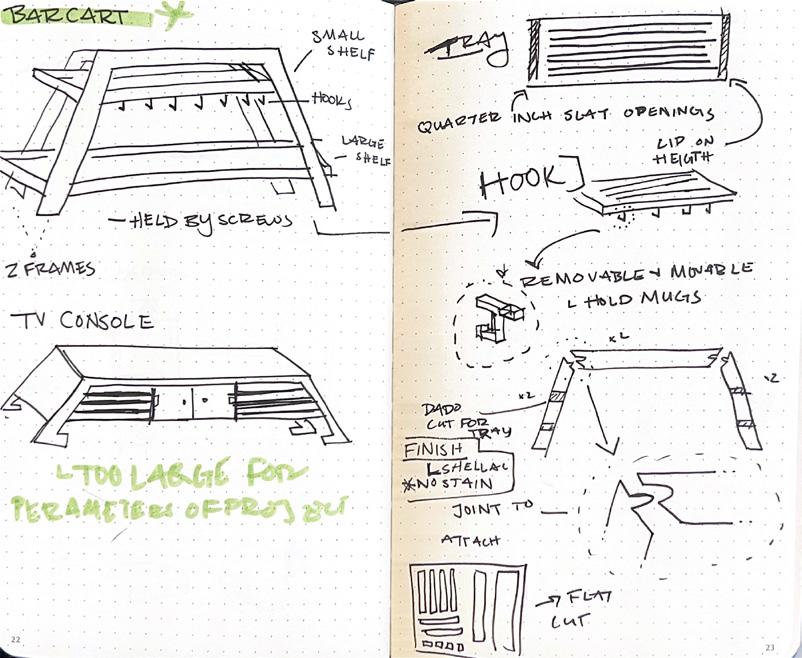 BARCART
SMALL
SHELF
HOOKS
LARGE
SHELF
– HELD BY SCREWS
2 FRAMES
TV CONSOLE
TOO LARGE FOR
PERAMETERS OF PROJECT
22
TRAY
QUARTER INCH SLAT OPENINGS
LID ON
HEIGTH
HOOK
REMOVABLE + MOVABLE
HOLD MUGS
x2
x2
x2
DADO
CUT FOR
TRAY
FINISH
SHELLAC
*NO STAIN
JOINT TO
ATTACH
→ FLAT
CUT
23